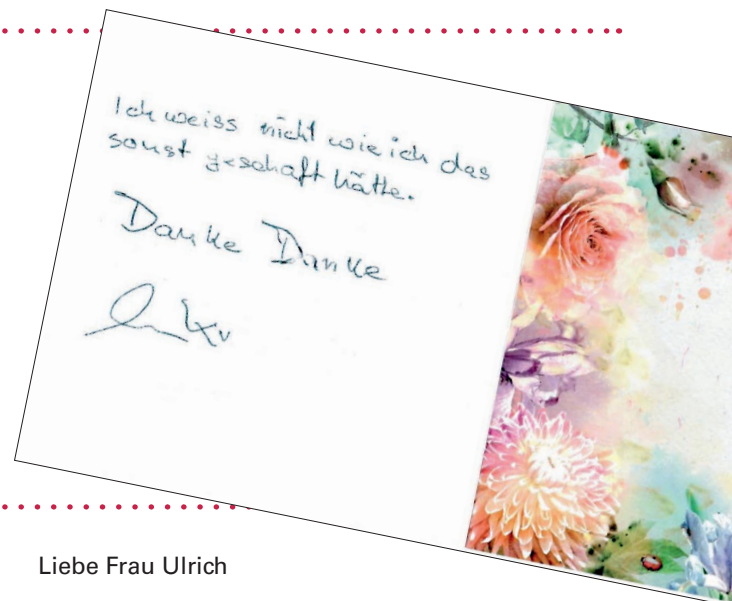 Ich weiss nicht wie ich das
sonst geschaft hätte.
Danke Danke
Liebe Frau Ulrich